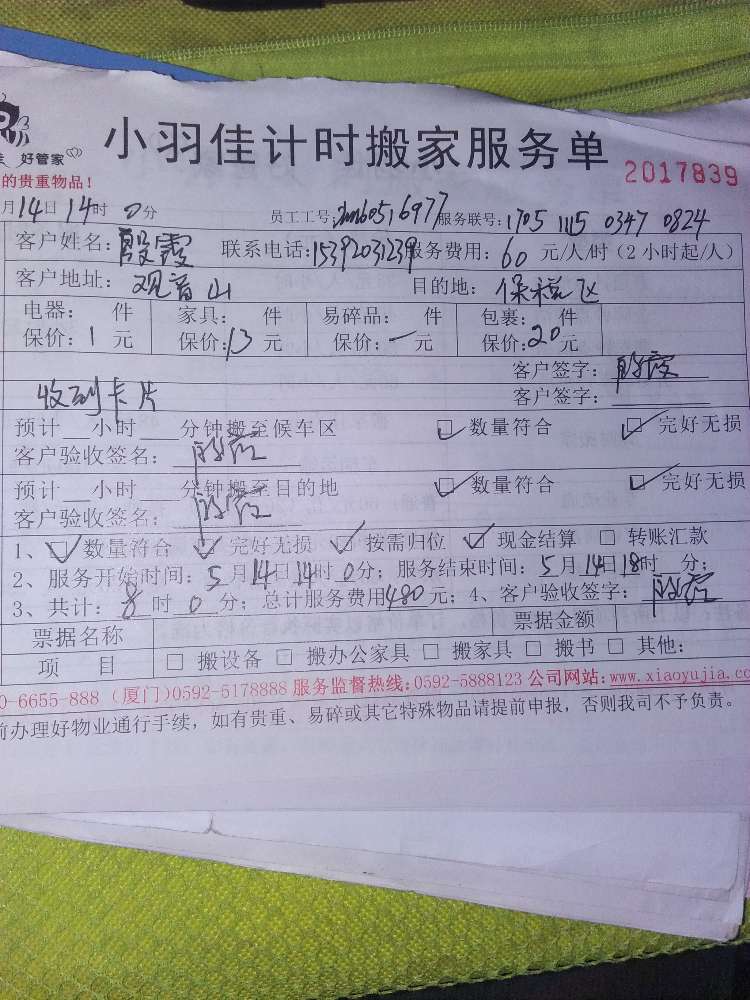 好管家
小羽佳计时搬家服务单
2017839
的贵重物品！
月14日14时0分 员工工号: 服务联号:1705 1115 0347 0824
客户姓名:殷霞 联系电话:15392031239服务费用:60元/人/时（2小时起/人）
客户地址: 观音山 目的地: 保税区
电器: 件 家具: 件 易碎品: 件 包裹: 件
保价:1元 保价:13元 保价:一元 保价:20元
客户签字:殷霞
收到卡片 客户签字:
预计__小时___分钟搬至候车区 ☑数量符合 ☑完好无损
客户验收签名: 殷霞
预计__小时___分钟搬至目的地 ☑数量符合 ☑完好无损
客户验收签名: 殷霞
1、☑数量符合 ☑完好无损 ☑按需归位 ☑现金结算 □转账汇款
2、服务开始时间:5月14日14时0分；服务结束时间:5月14日18时__分；
3、共计:8时0分；总计服务费用480元；4、客户验收签字:殷霞
票据名称 票据金额
项 目 □搬设备 □搬办公家具 □搬家具 □搬书 □其他:
0-6655-888（厦门)0592-5178888 服务监督热线:0592-5888123 公司网站:www.xiaoyujia.co
前办理好物业通行手续，如有贵重、易碎或其它特殊物品请提前申报，否则我司不予负责。